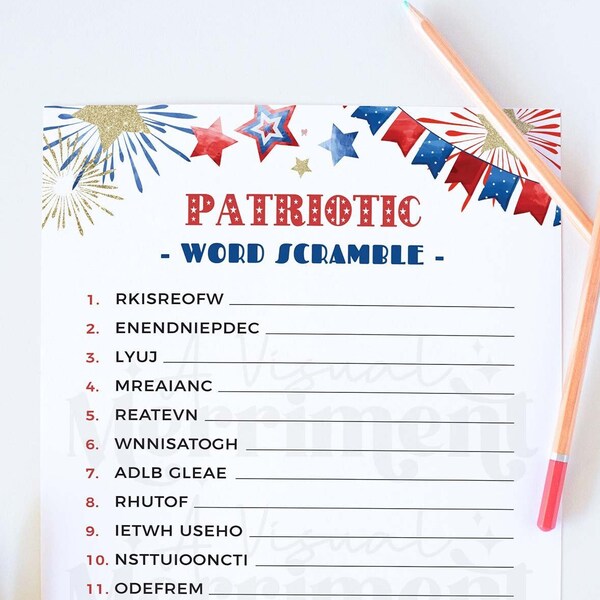 PATRIOTIC
- WORD SCRAMBLE -
1. RKISREOFW
2. ENENDNIEPDEC
3. LYUJ
4. MREAIANC
5. REATEVN
6. WNNISATOGH
7. ADLB GLEAE
8. RHUTOF
9. IETWH USEHO
10. NSTTUIOONCTI
11. ODEFREM
A Visual
Merriment
A Visual
Merriment